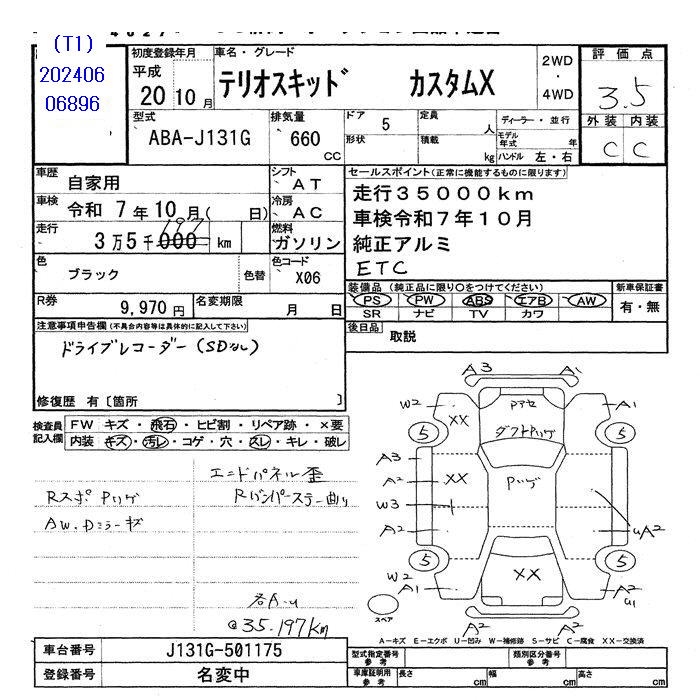 (T1)
202406
06896
初度登録年月
平成
20 10 月
車名・グレード
テリオスキッド カスタムX
2WD
・
4WD
評価点
3.5
外装 内装
C C
型式
ABA-J131G
排気量
660
CC
ドア 5
形状
定員
人
積載
kg
ディーラー・並行
モデル年式 年
ハンドル 左・右
車歴
自家用
シフト
AT
車検 令和 7年10月( 日)
冷房
AC
走行
3万5千000 km
197
燃料
ガソリン
色
ブラック
色替
色コード
X06
R券 9,970 円
名変期限 月 日
セールスポイント(正常に機能するものに限ります)
走行35000km
車検令和7年10月
純正アルミ
ETC
装備品 (純正品に限り○をつけてください)
PS PW ABS エアB AW
SR ナビ TV カワ
新車保証書
有・無
後日品 取説
注意事項申告欄(不具合内容等は具体的に記入して下さい)
ドライブレコーダー(SDなし)
修復歴 有〔箇所 〕
検査員記入欄
FW キズ・飛石・ヒビ割・リペア跡・×要
内装 キズ・汚レ・コゲ・穴・スレ・キレ・破レ
エンドパネル歪
Rスポ Pハゲ
Rバンパーステー曲り
AW.Dミラーキズ
各A-u
@35.197km
A3 A1
W2 XX Pアセ A1
5 ダクトPハゲ 5
A3
A2 XX Pハゲ
W3
A2 uA2
5 5
W2 XX
A1 A2
u1
A2 A2
スペア
A-キズ E-エクボ U-凹み W-補修跡 S-サビ C-腐食 XX-交換済
車台番号 J131G-501175
登録番号 名変中
型式指定番号
参考
類別区分番号
参考
車庫証明用
参考
長さ cm 幅 cm 高さ cm